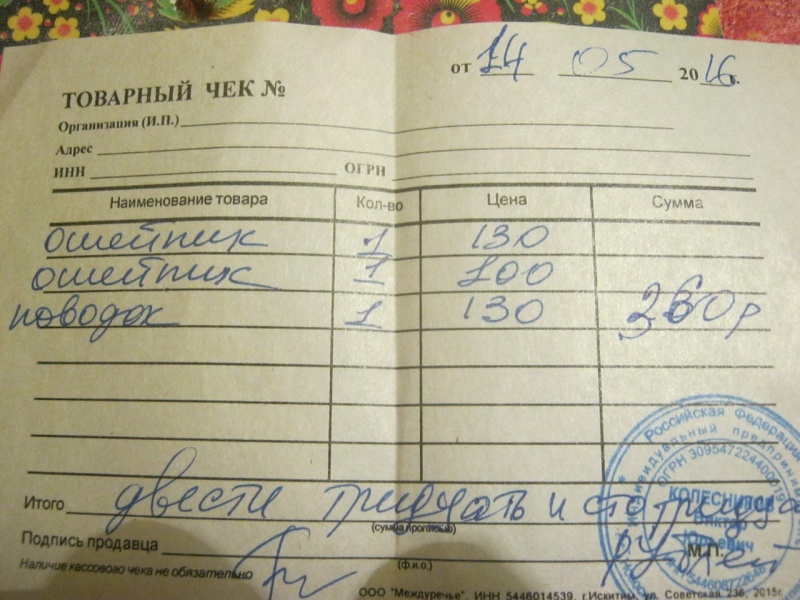 от 14 05 2016 г.
ТОВАРНЫЙ ЧЕК №
Организация (И.П.)
Адрес
ИНН ОГРН
Наименование товара Кол-во Цена Сумма
ошейник 1 130
ошейник 1 100
поводок 1 130 360р
Итого двести тридцать и сто тридца
(сумма прописью) рублей
Подпись продавца М.П.
(ф.и.о.)
Наличие кассового чека не обязательно
ООО "Междуречье", ИНН 5446014539, г.Искитим, ул. Советская 236, 2015г.
Российская Федерация
индивидуальный предприним
ОГРН 3095472244000
КОЛЕСНИКОВ
Виктор
Юрьевич